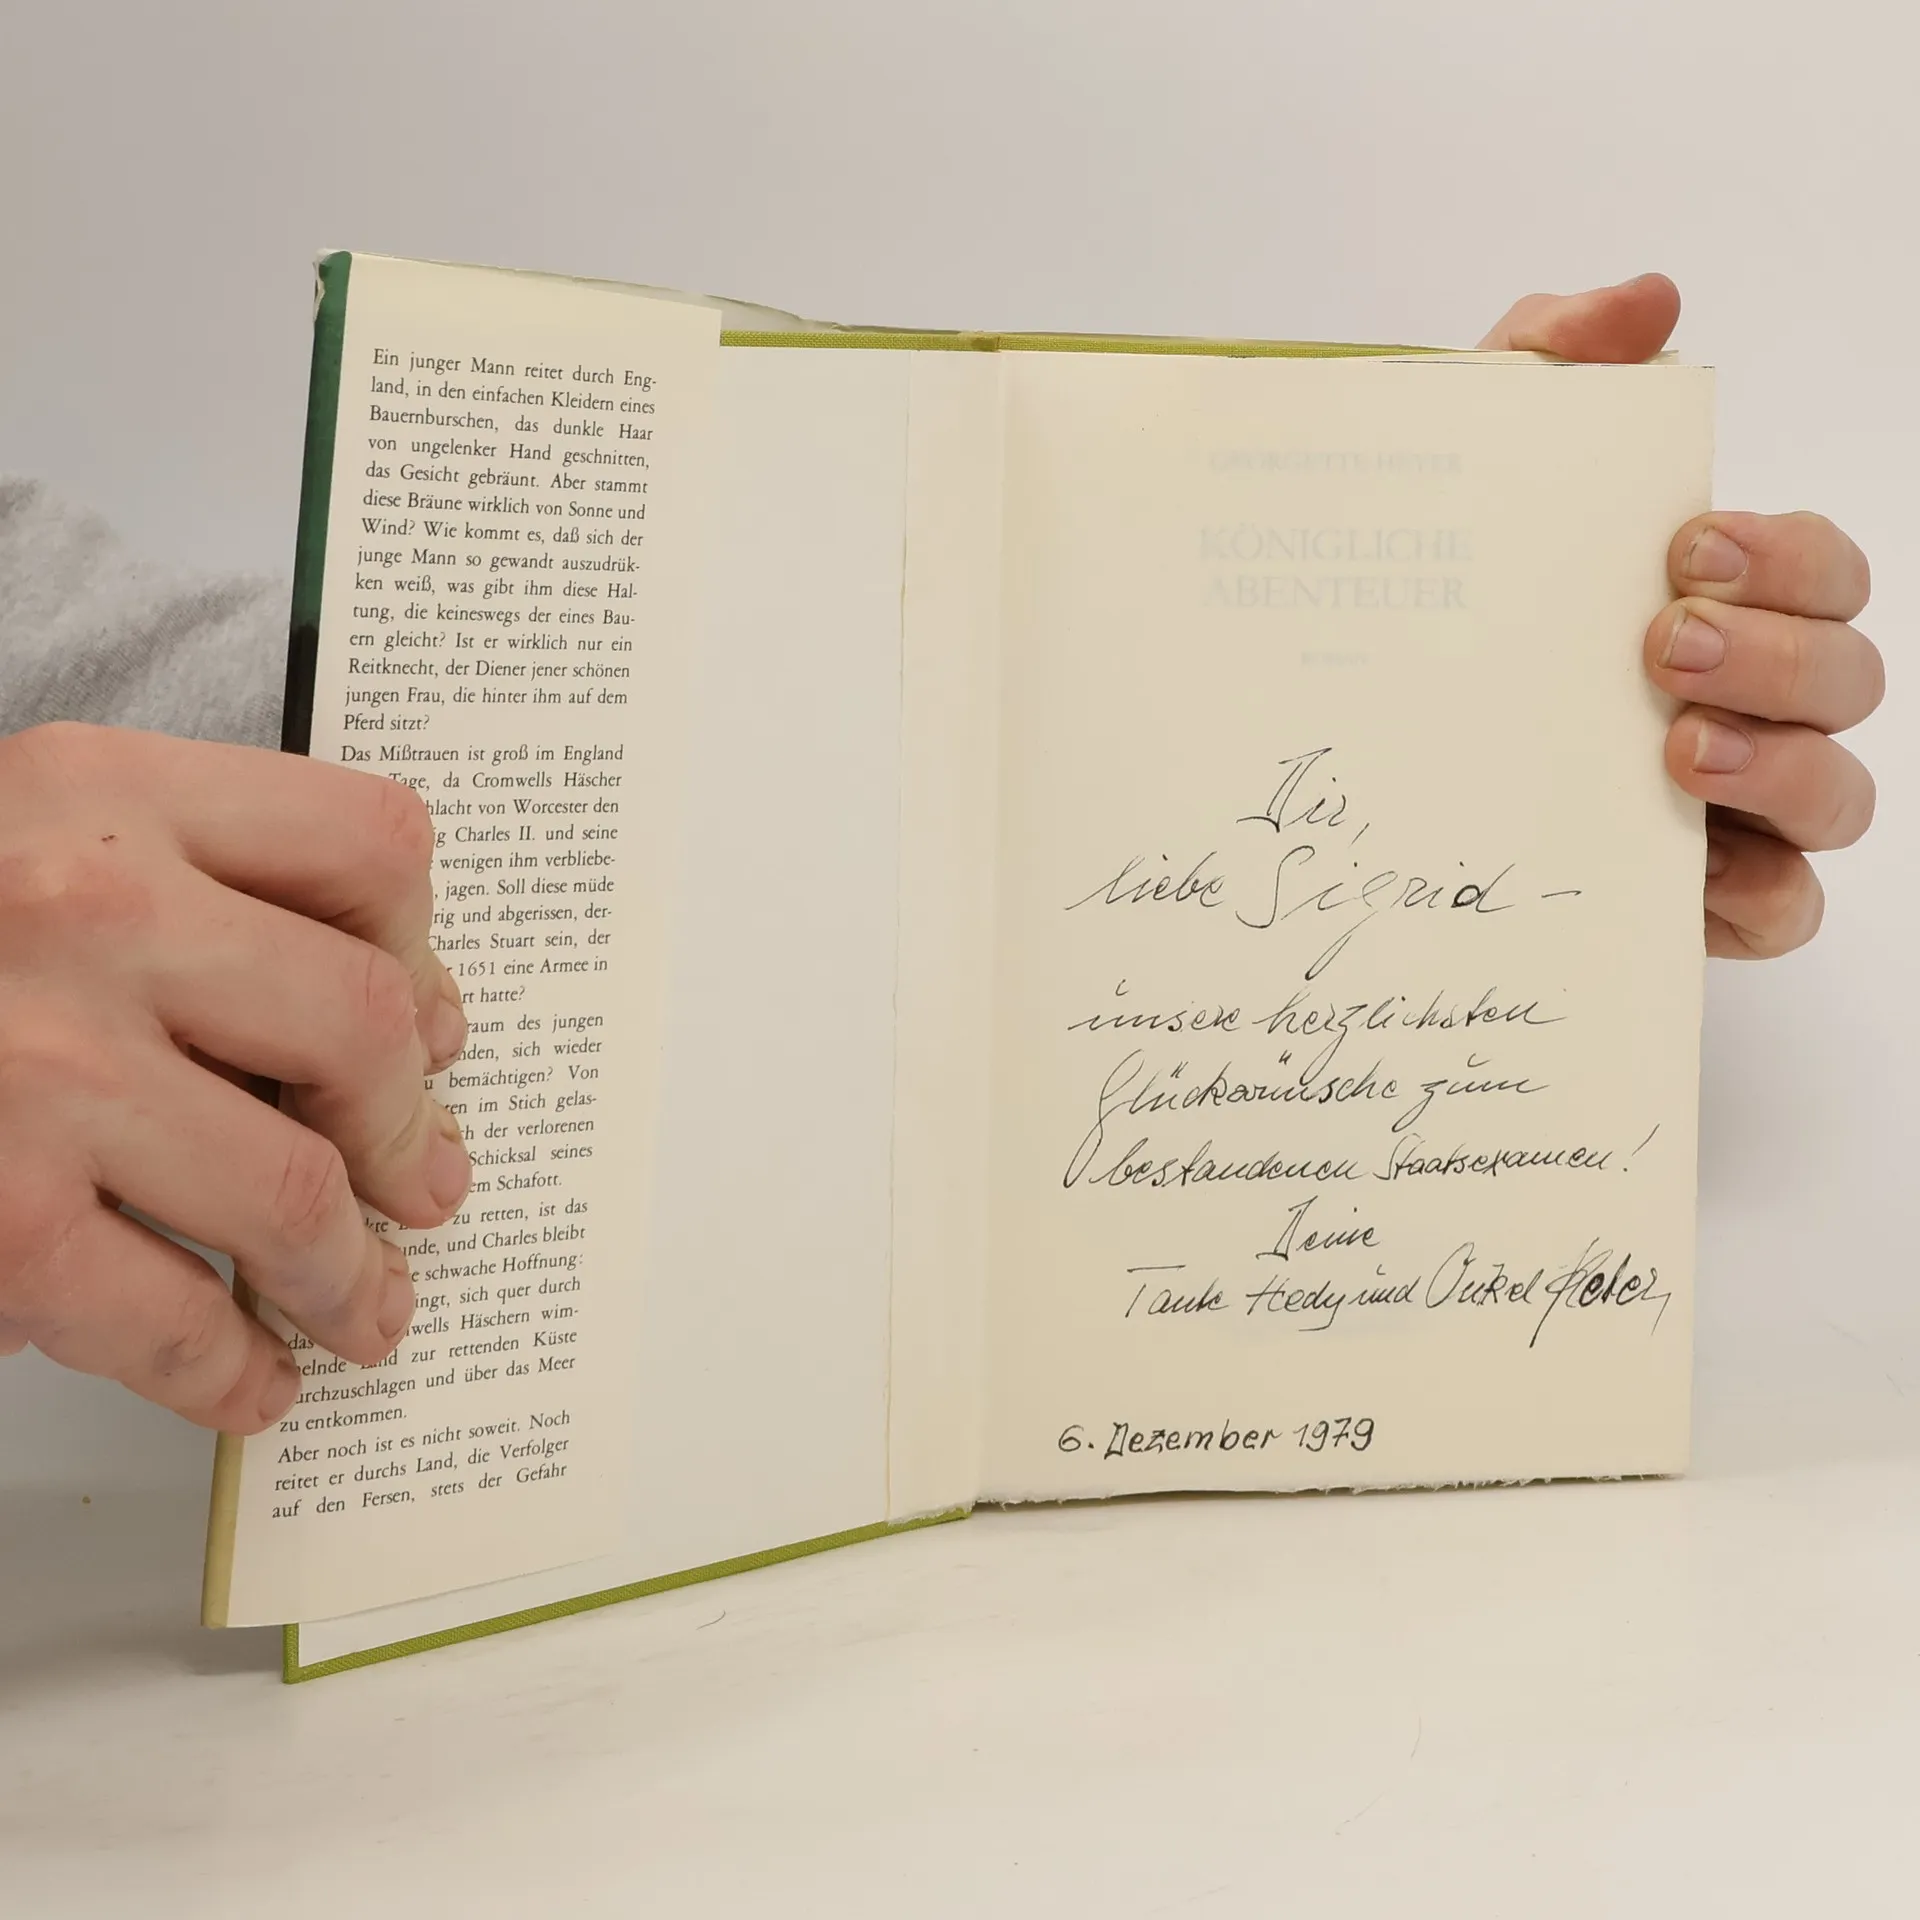 Ein junger Mann reitet durch Eng-
land, in den einfachen Kleidern eines
Bauernburschen, das dunkle Haar
von ungelenker Hand geschnitten,
das Gesicht gebräunt. Aber stammt
diese Bräune wirklich von Sonne und
Wind? Wie kommt es, daß sich der
junge Mann so gewandt auszudrük-
ken weiß, was gibt ihm diese Hal-
tung, die keineswegs der eines Bau-
ern gleicht? Ist er wirklich nur ein
Reitknecht, der Diener jener schönen
jungen Frau, die hinter ihm auf dem
Pferd sitzt?
Das Mißtrauen ist groß im England
Tage, da Cromwells Häscher
hlacht von Worcester den
ig Charles II. und seine
wenigen ihm verbliebe-
, jagen. Soll diese müde
rig und abgerissen, der-
Charles Stuart sein, der
1651 eine Armee in
rt hatte?
raum des jungen
nden, sich wieder
u bemächtigen? Von
ten im Stich gelas-
h der verlorenen
Schicksal seines
em Schafott.
kte zu retten, ist das
unde, und Charles bleibt
e schwache Hoffnung:
ingt, sich quer durch
das wells Häschern wim-
melnde Land zur rettenden Küste
durchzuschlagen und über das Meer
zu entkommen.
Aber noch ist es nicht soweit. Noch
reitet er durchs Land, die Verfolger
auf den Fersen, stets der Gefahr
GEORGETTE HEYER
KÖNIGLICHE
ABENTEUER
ROMAN
Dir,
liebe Sigrid –
unsere herzlichsten
Glückwünsche zum
bestandenen Staatsexamen!
Deine
Tante Hedy und Onkel Peter
6. Dezember 1979